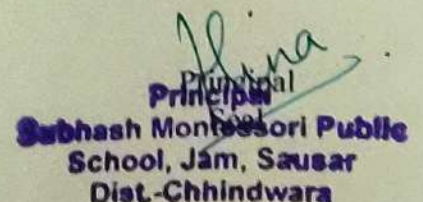 Principal
Principal
Seal
Subhash Montessori Public
School, Jam, Sausar
Dist.-Chhindwara